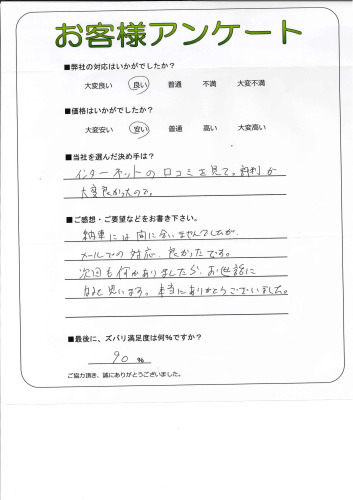 お客様アンケート
■弊社の対応はいかがでしたか？
大変良い 良い 普通 不満 大変不満
■価格はいかがでしたか？
大変安い 安い 普通 高い 大変高い
■当社を選んだ決め手は？
インターネットの口コミを見て。評判が
大変良かったので。
■ご感想・ご要望などをお書き下さい。
納車には間に合いませんでしたが、
メールでの対応、良かったです。
次回も何かありましたら、お世話に
なると思います。本当にありがとうございました。
■最後に、ズバリ満足度は何%ですか？
90 %
ご協力頂き、誠にありがとうございました。